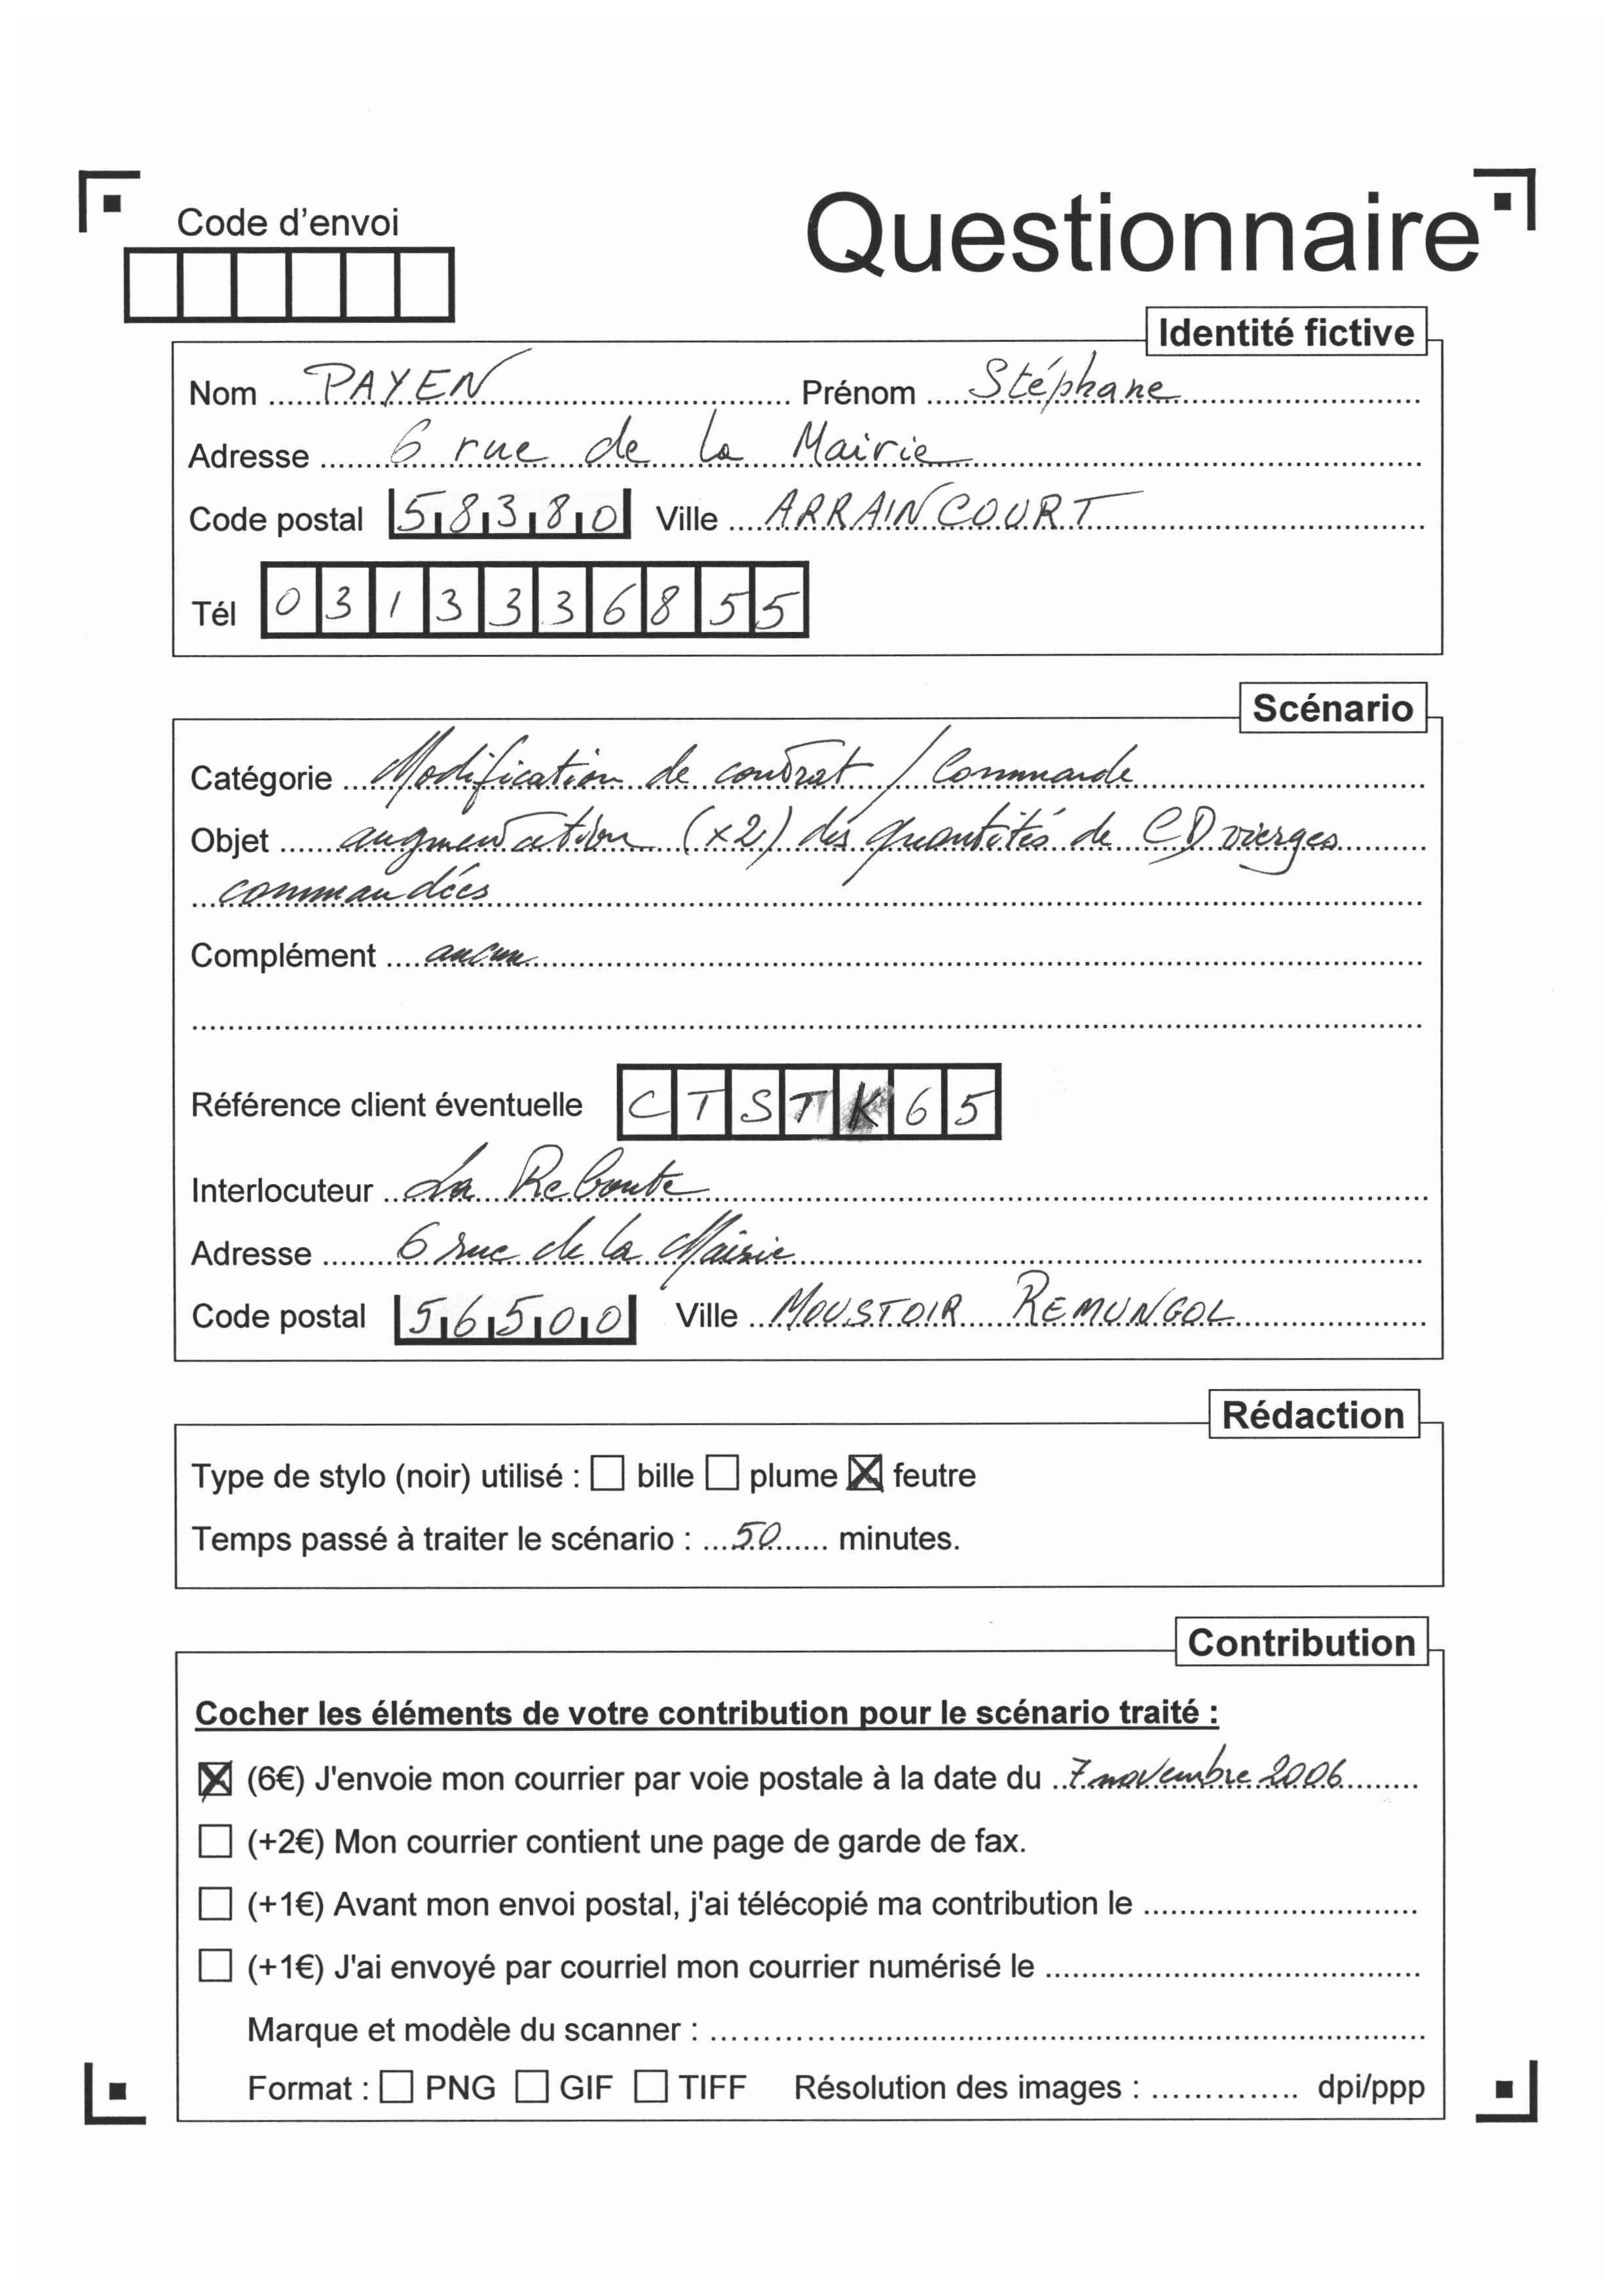 Code d'envoi
Questionnaire
Identité fictive
Nom PAYEN Prénom Stéphane
Adresse 6 rue de la Mairie
Code postal 58380 Ville ARRAINCOURT
Tél 0313336855
Scénario
Catégorie Modification de contrat / Commande
Objet augmentation (x2) des quantités de CD vierges
commandées
Complément aucun
Référence client éventuelle CTSTK65
Interlocuteur La Reboute
Adresse 6 rue de la Mairie
Code postal 56500 Ville MOUSTOIR REMUNGOL
Rédaction
Type de stylo (noir) utilisé : bille plume feutre
Temps passé à traiter le scénario : 50 minutes.
Contribution
Cocher les éléments de votre contribution pour le scénario traité :
(6€) J'envoie mon courrier par voie postale à la date du 7 novembre 2006
(+2€) Mon courrier contient une page de garde de fax.
(+1€) Avant mon envoi postal, j'ai télécopié ma contribution le
(+1€) J'ai envoyé par courriel mon courrier numérisé le
Marque et modèle du scanner :
Format : PNG GIF TIFF Résolution des images : dpi/ppp